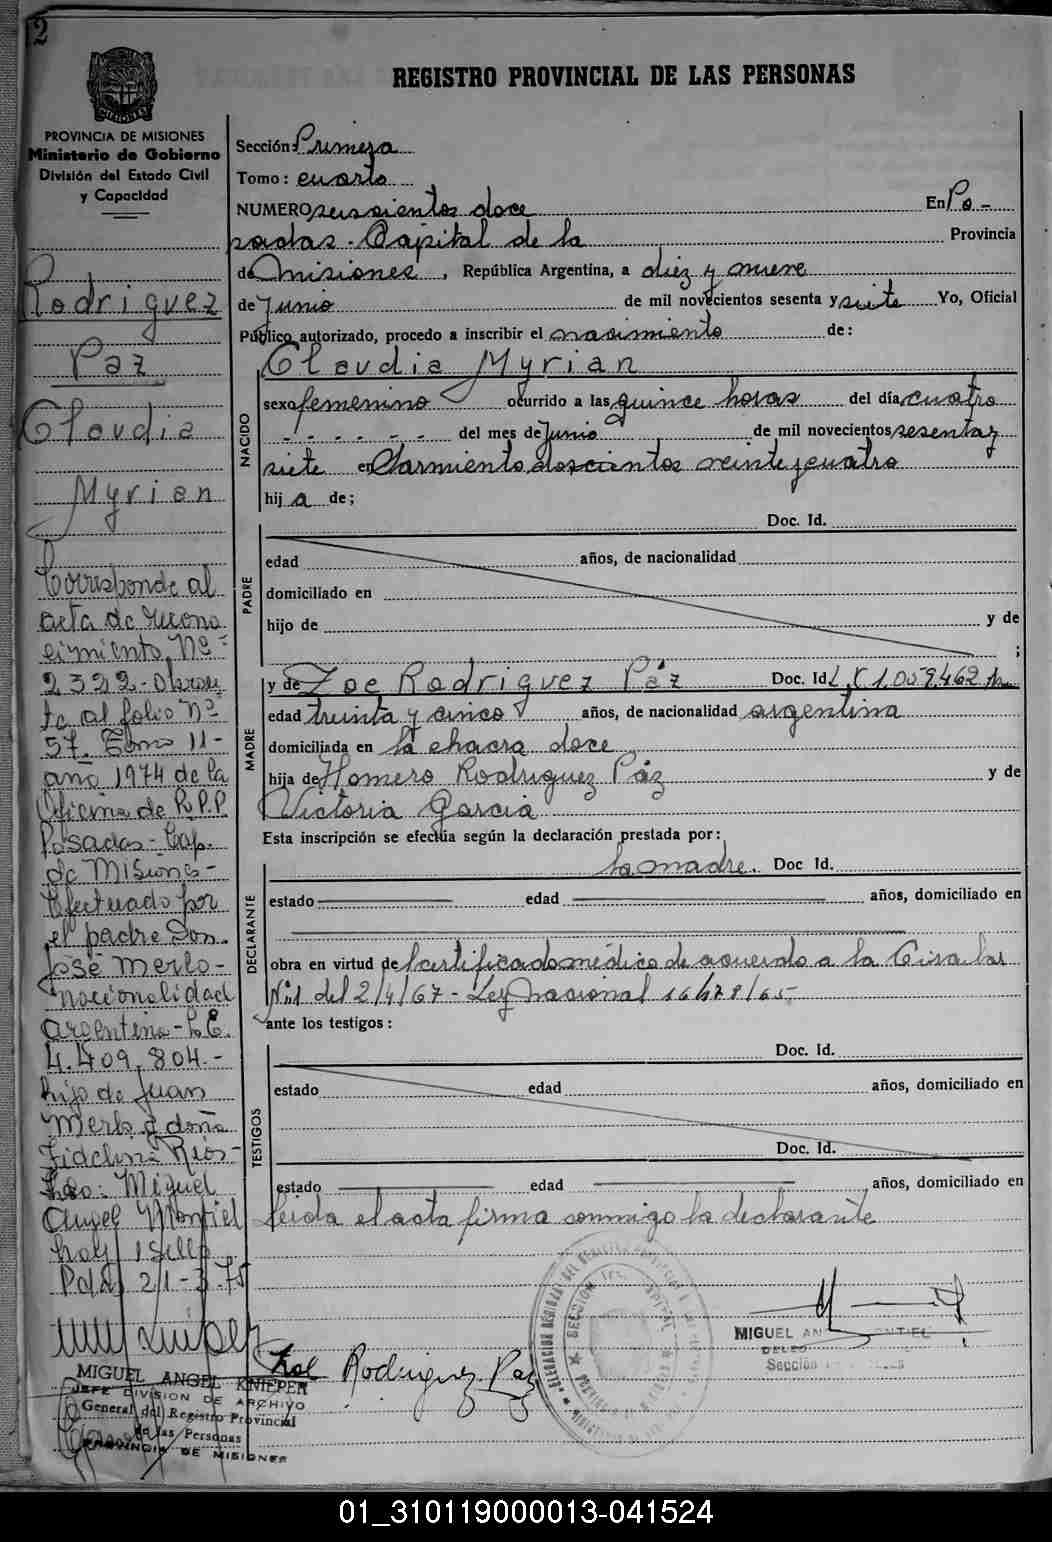 2
PROVINCIA DE MISIONES
Ministerio de Gobierno
División del Estado Civil
y Capacidad
Rodriguez
Paz
Claudia
Myrian
Corresponde al
acta de recono
cimiento Nº=
2322-Obran
te al folio Nº
57. Tomo 11-
año 1974 de la
Oficina de R.P.P.
Posadas-Cap.
de Misiones-
Efectuado por
el padre Don.
José Merlo-
nacionalidad
argentina-L.E.
4.409.804.-
hijo de Juan
Merlo y doña
Fidelina Rios-
Miguel
Angel Montiel
hay 1 sello
Pdas 21-3-75
MIGUEL ANGEL KNIEPER
JEFE DIVISION DE ARCHIVO
General del Registro Provincial
de las Personas
PROVINCIA DE MISIONES
REGISTRO PROVINCIAL DE LAS PERSONAS
Sección: Primera
Tomo: cuarto
NUMERO seiscientos doce En Po-
sadas-Capital de la Provincia
de Misiones, República Argentina, a diez y nueve
de Junio de mil novecientos sesenta y siete Yo, Oficial
Público autorizado, procedo a inscribir el nacimiento de:
Claudia Myrian
NACIDO
sexo femenino ocurrido a las quince horas del día cuatro
- - - - - - del mes de Junio de mil novecientos sesenta y
siete en Sarmiento doscientos veinte y cuatro
hij a de;
PADRE
Doc. Id.
edad años, de nacionalidad
domiciliado en
hijo de y de
;
MADRE
y de Zoe Rodriguez Páz Doc. Id. L.C 1.009.462
edad treinta y cinco años, de nacionalidad argentina
domiciliada en la chacra doce
hija de Homero Rodriguez Páz y de
Victoria Garcia
Esta inscripción se efectúa según la declaración prestada por:
DECLARANTE
la madre. Doc Id.
estado edad años, domiciliado en
obra en virtud de certificado médico de acuerdo a la Circular
Nº1 del 2/4/67-Ley Nacional 16478/65-
ante los testigos:
TESTIGOS
Doc. Id.
estado edad años, domiciliado en
Doc. Id.
estado edad años, domiciliado en
leida el acta firma conmigo la declarante
Zoe Rodriguez Paz
MIGUEL AN ENTIEL
DELEG
Sección
01_310119000013-041524